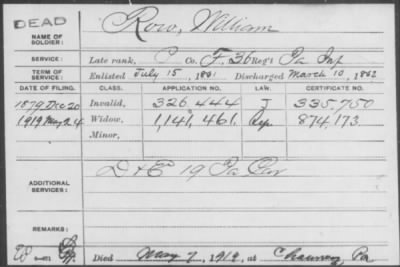 DEAD
NAME OF SOLDIER: Row, William
SERVICE: Late rank, C Co. F, 36 Reg't Pa Inf
TERM OF SERVICE: Enlisted July 15, 1861 Discharged March 10, 1862
DATE OF FILING. CLASS. APPLICATION NO. LAW. CERTIFICATE NO.
1879 Dec 20 Invalid, 326,444 J 335,750
1919 May 24 Widow, 1,141,461 874,173
Minor,
ADDITIONAL SERVICES: D & E 19 Pa Cav
REMARKS:
Died May 7, 1919, at Pa